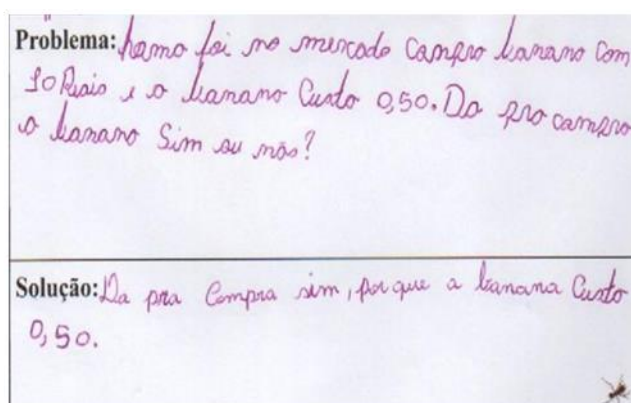 Problema: hamo foi no mercado campro banano com
10 Reais e o banano Custo 0,50. Da pro campro
o banano Sim ou não?
Solução: Da pra Compra sim, por que a banana Custo
0,50.